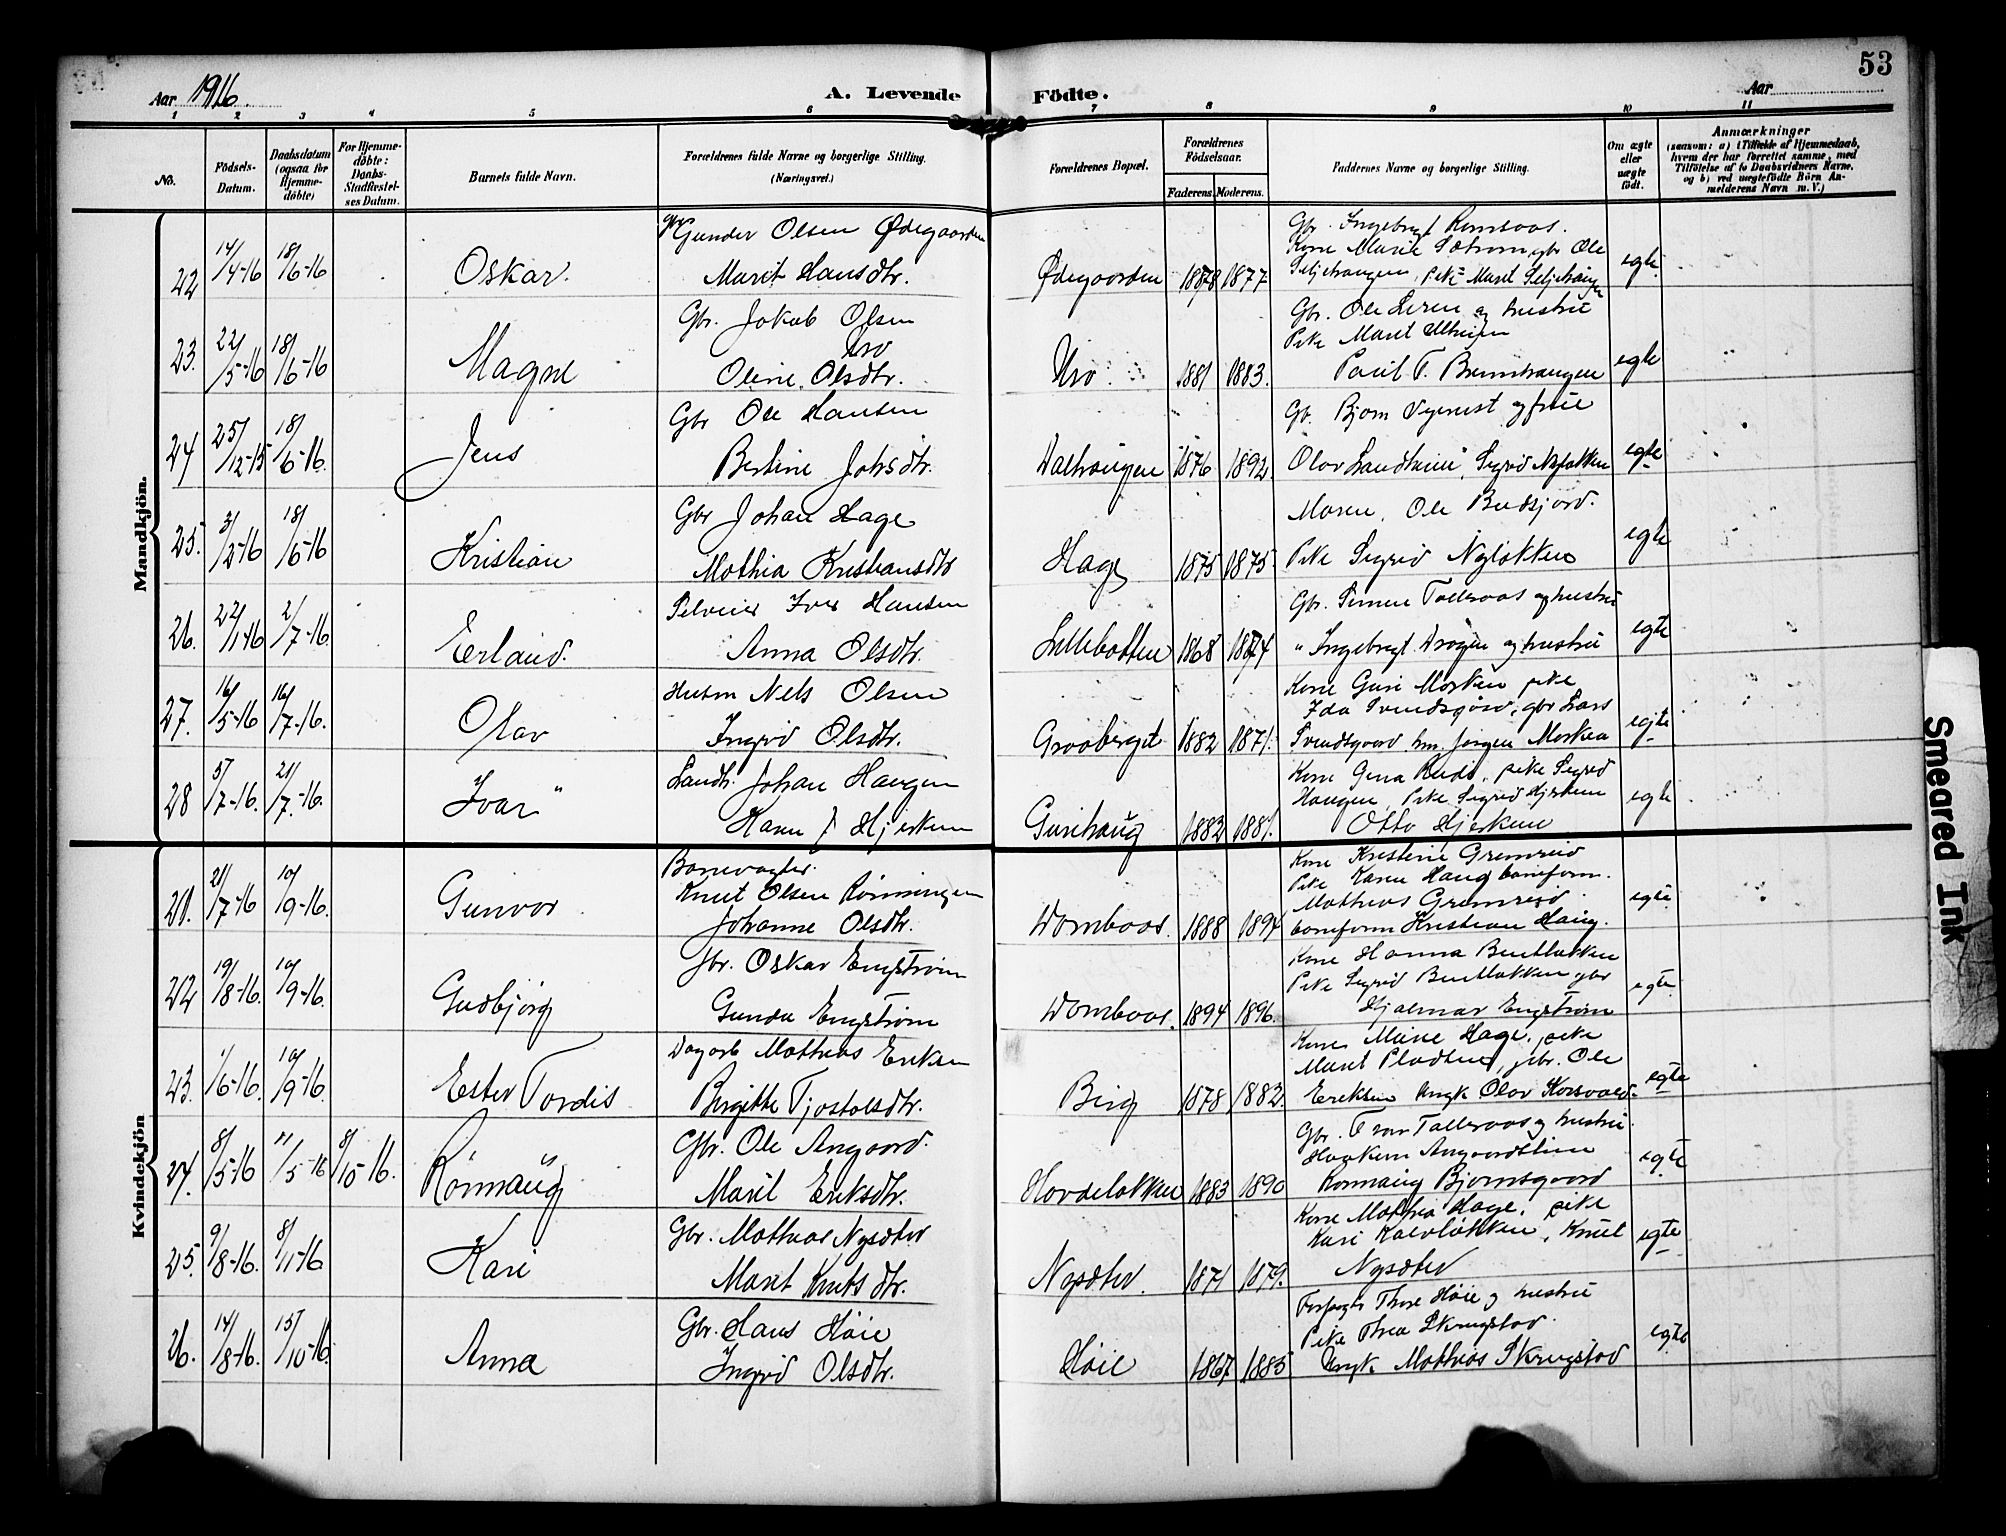 53
Aar 1916.
A. Levende Födte.
Aar
1 2 3 4 5 6 7 8 9 10 11
No.
Födsels-Datum.
Daabsdatum (ogsaa for Hjemme-döbte)
For Hjemme-döbte: Daabs-Stadfæstel-ses Datum.
Barnets fulde Navn.
Forældrenes fulde Navne og borgerlige Stilling. (Næringsvei.)
Forældrenes Bopæl.
Forældrenes Födselsaar.
Faderens. Moderens.
Faddernes Navne og borgerlige Stilling.
Om ægte eller uægte födt.
Anmærkninger
(saasom: a) i Tilfælde af Hjemmedaab,
hvem der har forrettet samme, med
Tilföielse af to Daabsvidners Navne,
og b) ved uægtefödte Börn An-
melderens Navn m. V.)
Mandkjön.
22 14/4-16 18/6-16 Oskar. Gbr Gunder Olsen Ødegaarden
Marit Hansdtr. Ødegaarden 1878 1877 Gbr. Ingebrigt Romsaas.
Kone Marie Sætrom, gbr Ole
Seljehaugen, pike Marit Seljehaugen egte.
23. 22/5-16 18/6-16 Magne Gbr. Jakob Olsen Uro
Oline Olsdtr. Uro. 1881 1883. Gbr. Ole Leren og hustru
Pike Marit
Paul T. Brennhaugen egte
24 25/12-15 18/6-16. Jens Gbr Ole Hansen
Bertine Johsdtr. Dalhaugen 1876 1892. Gb. Bjorn og frue
Olav Landheim, Sigrid Nyløkken egte
25. 3/2-16 18/6-16 Kristian Gbr Johan Hage
Mathia Kristiansdtr Hage 1875 1875 Maren, Ole Budsjord.
Pike Sigrid Nyløkken egte
26. 22/1-16 2/7-16 Erland. Selveier Iver Hansen
Anna Olsdtr. Lillebotten 1868 1874 Gbr. Simen Talleraas og hustru
" Ingebrigt og hustru egte
27. 16/5-16 16/7-16. Olav Husm Nels Olsen
Ingrid Olsdtr. Graaberget 1882 1871. Kone Guri Morken pike
Ida Svendsgård, gbr Lars
Svendsgaard hm. Jørgen Morken egte
28 5/7-16. 21/7-16. Ivar Landh. Johan Haugen
Karen J Hjerkin Gurihaug 1882 1881. Kone Gina Ruds, pike Sigrid
Haugen, Pike Sigrid Hjerkin
Otto Hjerkin egte
Kvindekjön
21. 21/7-16 10/9-16. Gunvor Banevogter
Knut Olsen Rønningen
Johanne Olsdtr. Domboas. 1888 1894 Kone Kristine Gremreid
Pike Karen Haug baneform.
Mathias Gremreid
baneform Kristian Haug. egte.
22 19/8-16. 10/9-16. Gudbjörg gbr. Oskar Engstrøm
Gunda Engstrøm Domboas. 1894 1896. Kone Hanna Bentløkken
Pike Sigrid Bentløkken gbr
Hjalmar Engstrøm egte
23. 1/6-16. 10/9-16. Ester Tordis Dagarb Mathias Eriksen
Birgitte Tjostolsdtr. Birg 1878 1882. Kone Marie Hage, pike
Marit Pladsen, gbr. Ole
Eriksen Ungk Olav Korsvold. egte
24. 8/5-16 11/5-16 8/10-16. Rønnaug Gbr. Ole Angaard
Marit Eriksdtr. Hovdeløkken 1883 1890 Gbr. Talleraas og hustru.
Haakon Angaardslien
Rønnaug Bjørnsgaard egte
25. 9/8-16. 8/11-16 Kari Gbr. Mathias Nysæter
Marit Knutsdtr. Nysæter. 1871 1879. Kone Mathia Hage, pike
Kari Kalvløkken, Knut
Nysæter egte
26. 14/8-16. 15/10-16. Anna Gbr. Hans Høie
Ingrid Olsdtr. Høie 1867 1885 Forpagter Thore Høie og hustru
Pike Thea Skrugstad.
Ungk Mathias Skrugstad egte
Smeared Ink